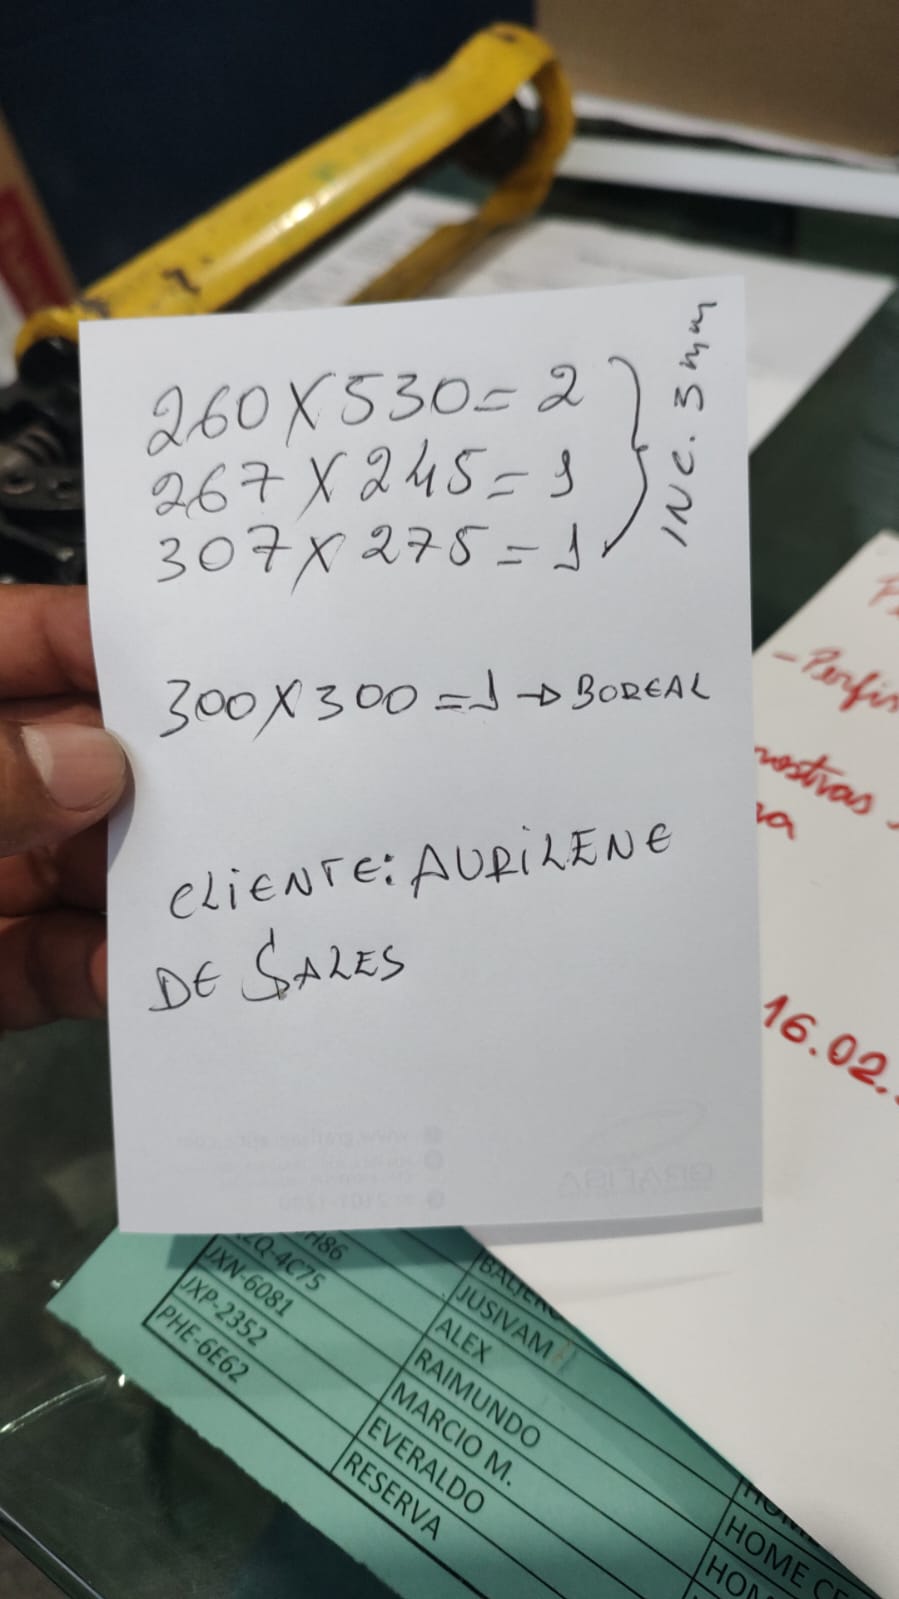 260 X 530 = 2
267 X 245 = 1
307 X 275 = 1
INC. 3 mm
300 X 300 = 1 → BOREAL
CLIENTE: AURILENE
DE SALES
- Perfis
16.02.
H86
4C75
JXN-6081
JXP-2352
PHE-6E62
JUSIVAM
ALEX
RAIMUNDO
MARCIO M.
EVERALDO
RESERVA
HOME CE